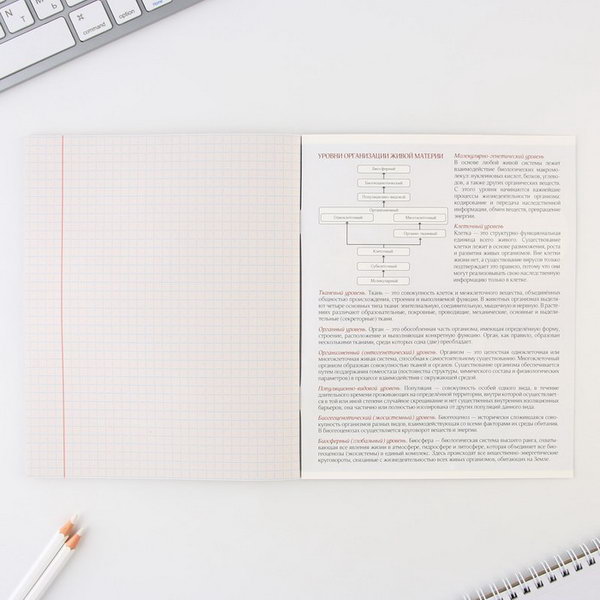 N
T
M
Ь
⌘
command
option
УРОВНИ ОРГАНИЗАЦИИ ЖИВОЙ МАТЕРИИ
Биосферный
Биогеоценотический
Популяционно-видовой
Организменный
Одноклеточный
Многоклеточный
Органно-тканевый
Клеточный
Субклеточный
Молекулярный
Молекулярно-генетический уровень
В основе любой живой системы лежит
взаимодействие биологических макромо-
лекул: нуклеиновых кислот, белков, углево-
дов, а также других органических веществ.
С этого уровня начинаются важнейшие
процессы жизнедеятельности организма:
кодирование и передача наследственной
информации, обмен веществ, превращение
энергии.
Клеточный уровень
Клетка — это структурно-функциональная
единица всего живого. Существование
клетки лежит в основе размножения, роста
и развития живых организмов. Вне клетки
жизни нет, а существование вирусов только
подтверждает это правило, потому что они
могут реализовывать свою наследственную
информацию только в клетке.
Тканевый уровень. Ткань — это совокупность клеток и межклеточного вещества, объединённых
общностью происхождения, строения и выполняемой функции. В животных организмах выделя-
ют четыре основных типа ткани: эпителиальную, соединительную, мышечную и нервную. В расте-
ниях различают образовательные, покровные, проводящие, механические, основные и выдели-
тельные (секреторные) ткани.
Органный уровень. Орган — это обособленная часть организма, имеющая определённую форму,
строение, расположение и выполняющая конкретную функцию. Орган, как правило, образован
несколькими тканями, среди которых одна (две) преобладает.
Организменный (онтогенетический) уровень. Организм — это целостная одноклеточная или
многоклеточная живая система, способная к самостоятельному существованию. Многоклеточный
организм образован совокупностью тканей и органов. Существование организма обеспечивается
путем поддержания гомеостаза (постоянства структуры, химического состава и физиологических
параметров) в процессе взаимодействия с окружающей средой.
Популяционно-видовой уровень. Популяция — совокупность особей одного вида, в течение
длительного времени проживающих на определённой территории, внутри которой осуществляет-
ся в той или иной степени случайное скрещивание и нет существенных внутренних изоляционных
барьеров; она частично или полностью изолирована от других популяций данного вида.
Биогеоценотический (экосистемный) уровень. Биогеоценоз — исторически сложившаяся сово-
купность организмов разных видов, взаимодействующая со всеми факторами их среды обитания.
В биогеоценозах осуществляется круговорот веществ и энергии.
Биосферный (глобальный) уровень. Биосфера — биологическая система высшего ранга, охваты-
вающая все явления жизни в атмосфере, гидросфере и литосфере, которая объединяет все био-
геоценозы (экосистемы) в единый комплекс. Здесь происходят все вещественно-энергетические
круговороты, связанные с жизнедеятельностью всех живых организмов, обитающих на Земле.